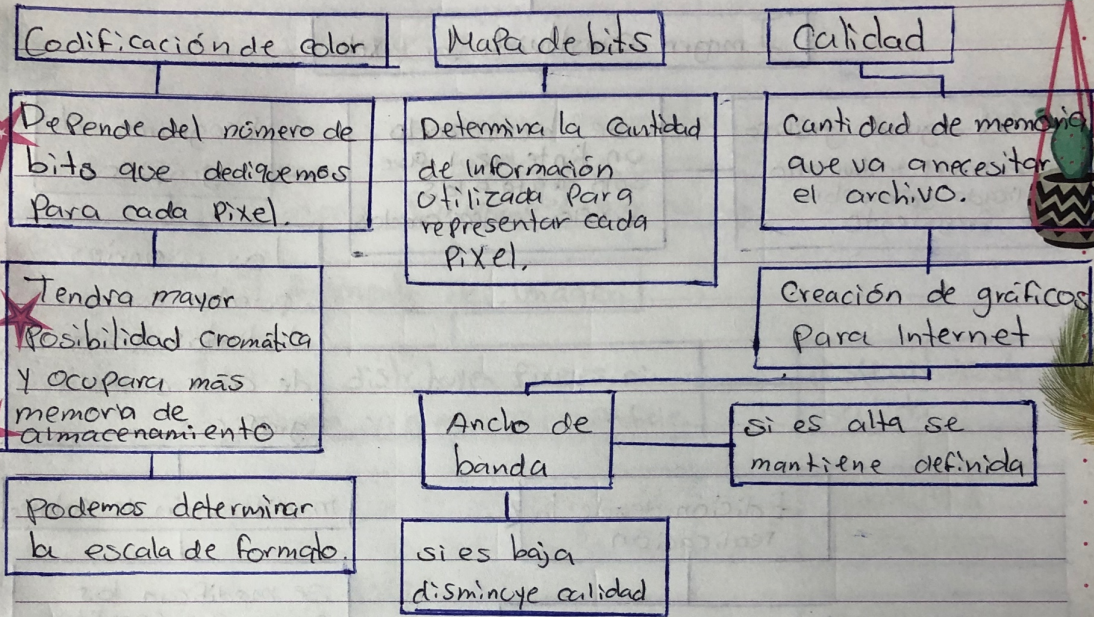 Codificación de color
Depende del número de
bits que dediquemos
para cada pixel.
Tendra mayor
posibilidad cromática
y ocupara más
memoria de
almacenamiento
podemos determinar
la escala de formato.
Mapa de bits
Determina la cantidad
de información
utilizada para
representar cada
pixel.
Calidad
Cantidad de memoria
que va a necesitar
el archivo.
Creación de gráficos
para Internet
Ancho de
banda
si es alta se
mantiene definida
si es baja
disminuye calidad